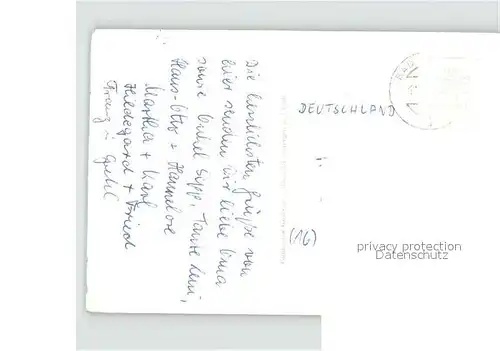 Die herzlichsten Grüße von
hier senden Dir liebe Erna
sowie Onkel Sepp, Tante Leni,
Hans-Otto + Hannelore
Martha + Karl
Hildegard + Fried
Franz
DEUTSCHLAND
(16)
privacy protection
Datenschutz